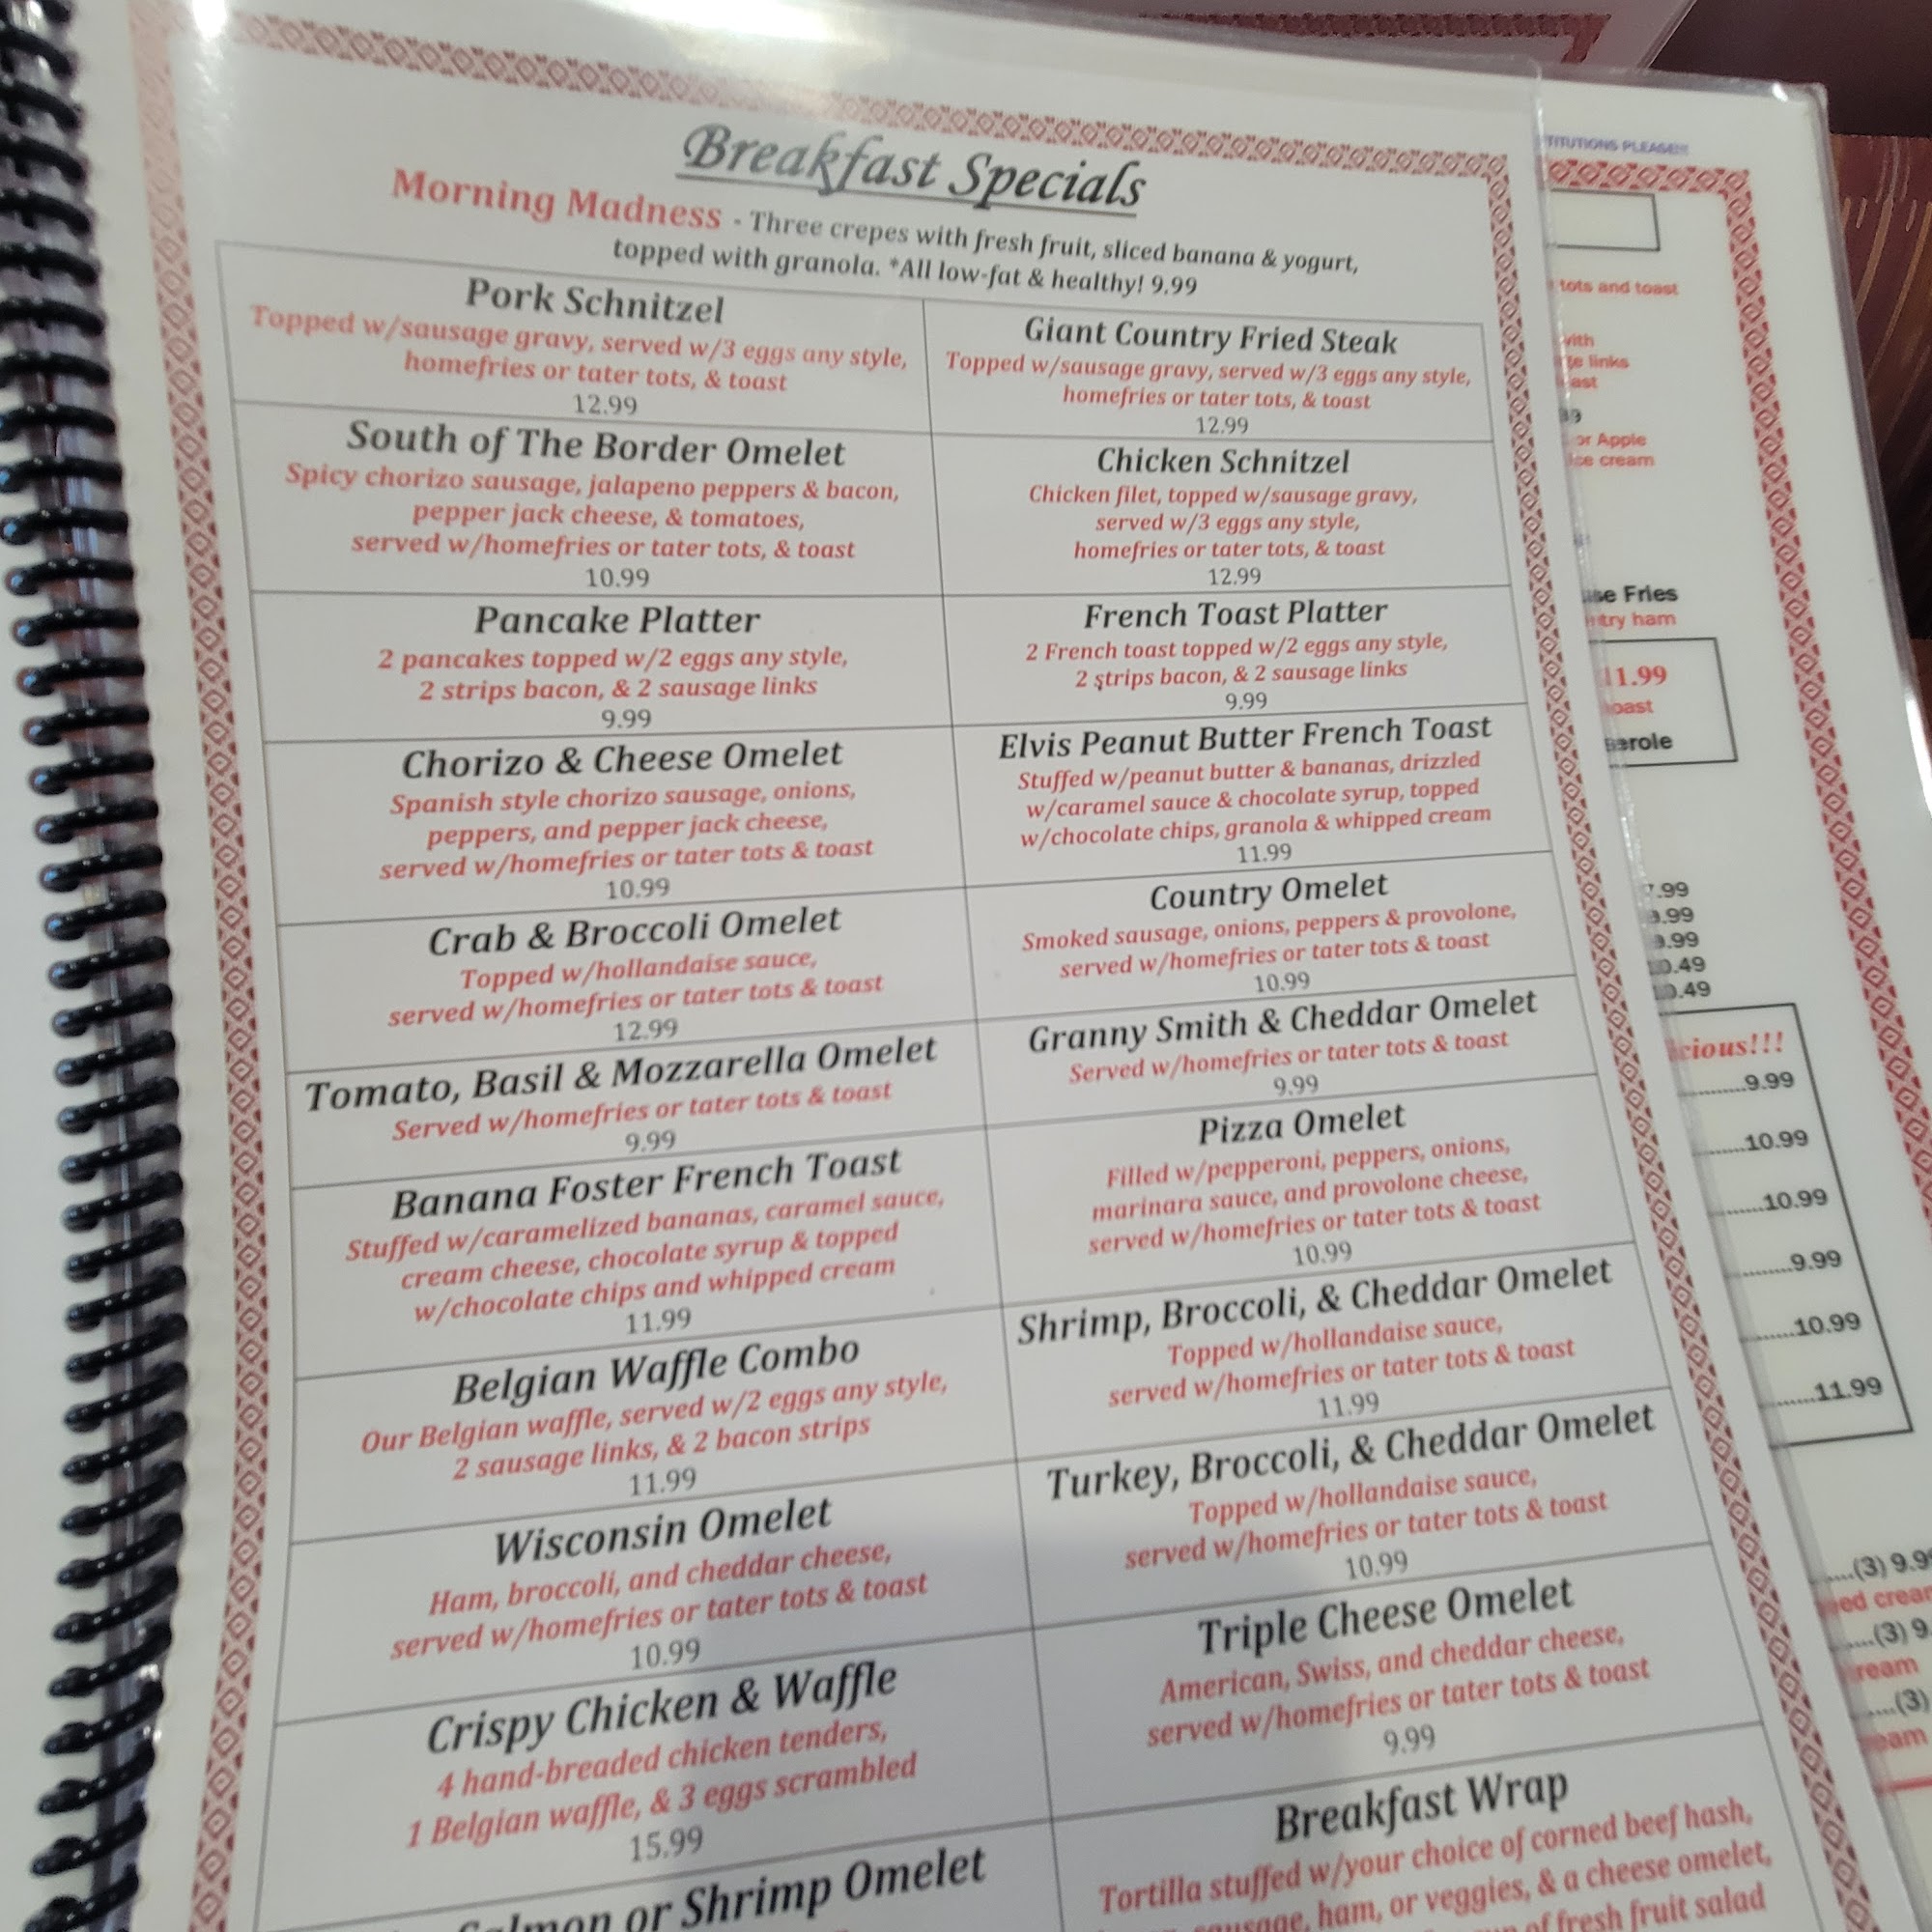 Breakfast Specials
Morning Madness - Three crepes with fresh fruit, sliced banana & yogurt,
topped with granola. *All low-fat & healthy! 9.99
Pork Schnitzel
Topped w/sausage gravy, served w/3 eggs any style,
homefries or tater tots, & toast
12.99
Giant Country Fried Steak
Topped w/sausage gravy, served w/3 eggs any style,
homefries or tater tots, & toast
12.99
South of The Border Omelet
Spicy chorizo sausage, jalapeno peppers & bacon,
pepper jack cheese, & tomatoes,
served w/homefries or tater tots, & toast
10.99
Chicken Schnitzel
Chicken filet, topped w/sausage gravy,
served w/3 eggs any style,
homefries or tater tots, & toast
12.99
Pancake Platter
2 pancakes topped w/2 eggs any style,
2 strips bacon, & 2 sausage links
9.99
French Toast Platter
2 French toast topped w/2 eggs any style,
2 strips bacon, & 2 sausage links
9.99
Chorizo & Cheese Omelet
Spanish style chorizo sausage, onions,
peppers, and pepper jack cheese,
served w/homefries or tater tots & toast
10.99
Elvis Peanut Butter French Toast
Stuffed w/peanut butter & bananas, drizzled
w/caramel sauce & chocolate syrup, topped
w/chocolate chips, granola & whipped cream
11.99
Crab & Broccoli Omelet
Topped w/hollandaise sauce,
served w/homefries or tater tots & toast
12.99
Country Omelet
Smoked sausage, onions, peppers & provolone,
served w/homefries or tater tots & toast
10.99
Tomato, Basil & Mozzarella Omelet
Served w/homefries or tater tots & toast
9.99
Granny Smith & Cheddar Omelet
Served w/homefries or tater tots & toast
9.99
Banana Foster French Toast
Stuffed w/caramelized bananas, caramel sauce,
cream cheese, chocolate syrup & topped
w/chocolate chips and whipped cream
11.99
Pizza Omelet
Filled w/pepperoni, peppers, onions,
marinara sauce, and provolone cheese,
served w/homefries or tater tots & toast
10.99
Belgian Waffle Combo
Our Belgian waffle, served w/2 eggs any style,
2 sausage links, & 2 bacon strips
11.99
Shrimp, Broccoli, & Cheddar Omelet
Topped w/hollandaise sauce,
served w/homefries or tater tots & toast
11.99
Wisconsin Omelet
Ham, broccoli, and cheddar cheese,
served w/homefries or tater tots & toast
10.99
Turkey, Broccoli, & Cheddar Omelet
Topped w/hollandaise sauce,
served w/homefries or tater tots & toast
10.99
Crispy Chicken & Waffle
4 hand-breaded chicken tenders,
1 Belgian waffle, & 3 eggs scrambled
15.99
Triple Cheese Omelet
American, Swiss, and cheddar cheese,
served w/homefries or tater tots & toast
9.99
Salmon or Shrimp Omelet
Breakfast Wrap
Tortilla stuffed w/your choice of corned beef hash,
sausage, ham, or veggies, & a cheese omelet,
of fresh fruit salad
PLEASE!!!
tots and toast
links
or Apple
cream
Fries
ham
11.99
9.99
10.99
10.99
9.99
10.99
11.99
(3) 9.9
(3) 9.
(3)